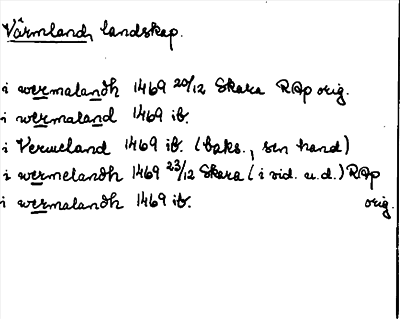 Värmland, landskap.
i wermalandh 1469 20/12 Skara RAp orig.
i wermaland 1469 ib.
i Vermeland 1469 ib. (baks., sen hand)
i wermelandh 1469 23/12 Skara (i vid. u.d.) RAp orig.
i wermalandh 1469 ib.